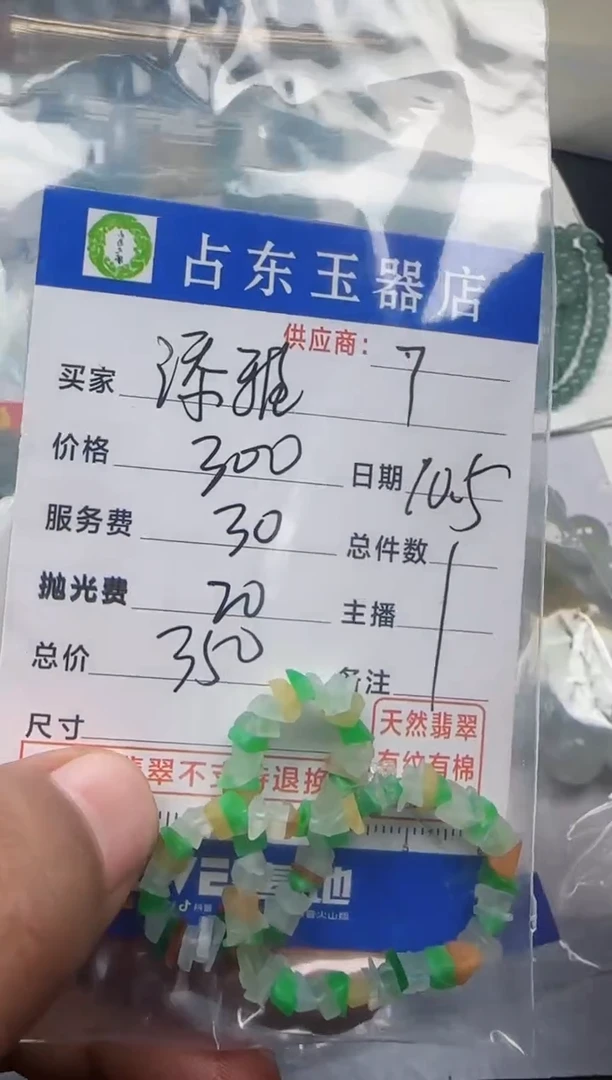 占东玉器店
供应商: 7
买家 添雅
价格 300 日期 10.5
服务费 30 总件数 1
抛光费 20 主播
总价 350 备注
尺寸
天然翡翠
有纹有棉
翡翠不支持退换
抖音
抖音火山版